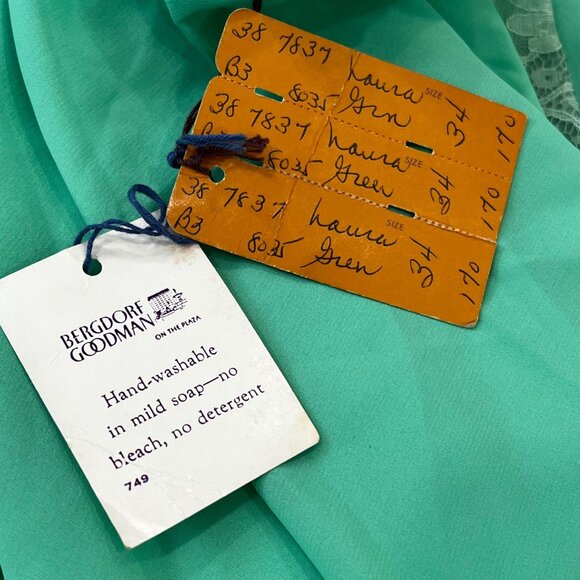 38 7837 Laura
B3 8035 Grn SIZE 34 170
38 7837 Laura
8035 Green SIZE 34 170
38 7837 Laura
B3 8035 Gren SIZE 34 170
BERGDORF
GOODMAN
ON THE PLAZA
Hand-washable
in mild soap—no
bleach, no detergent
749